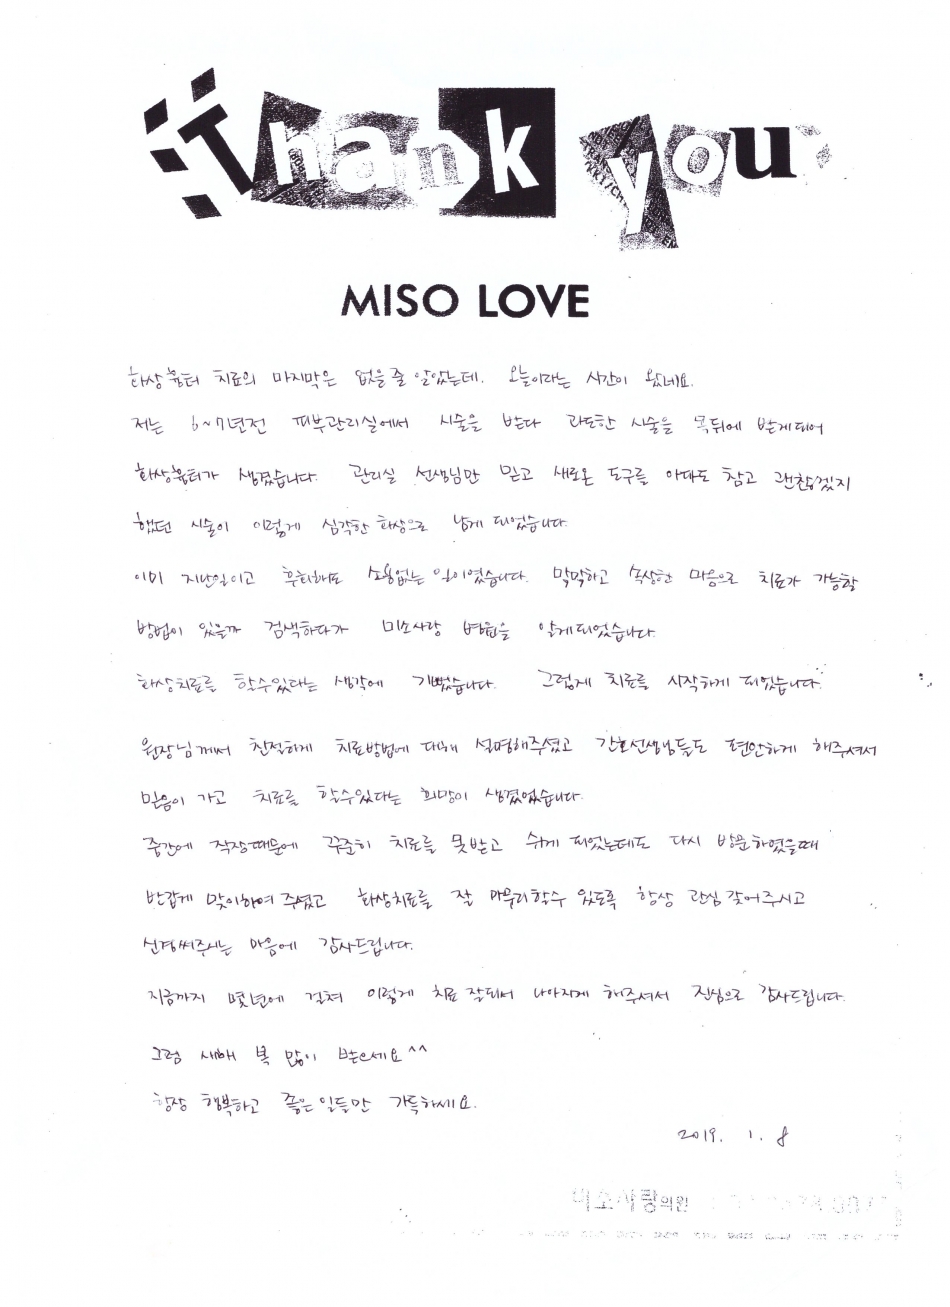 Thank you
MISO LOVE
화상흉터 치료의 마지막은 없을줄 알았는데. 오늘이라는 시간이 왔네요.
저는 6~7년전 피부관리실에서 시술을 받다 과도한 시술을 목뒤에 받게되어
화상흉터가 생겼습니다. 관리실 선생님만 믿고 새로운 도구를 아파도 참고 괜찮겠지
했던 시술이 이렇게 심각한 화상으로 남게 되었습니다.
이미 지난일이고 후회해도 소용없는 일이였습니다. 막막하고 속상한 마음으로 치료가 가능할
방법이 있을까 검색하다가 미소사랑 병원을 알게되었습니다.
화상치료를 할수있다는 생각에 기뻤습니다. 그렇게 치료를 시작하게 되었습니다.
원장님께서 친절하게 치료방법에 대해 설명해주셨고 간호선생님들도 편안하게 해주셔서
믿음이 가고 치료를 할수있다는 희망이 생겼었습니다.
중간에 직장때문에 꾸준히 치료를 못받고 쉬게 되었는데도 다시 방문하였을때
반갑게 맞이하여 주셨고 화상치료를 잘 마무리할수 있도록 항상 관심 갖어주시고
신경써주시는 마음에 감사드립니다.
지금까지 몇년에 걸쳐 이렇게 치료 잘되서 나아지게 해주셔서 진심으로 감사드립니다.
그럼 새해 복 많이 받으세요^^
항상 행복하고 좋은 일들만 가득하세요.
2019. 1. 8
미소사랑의원